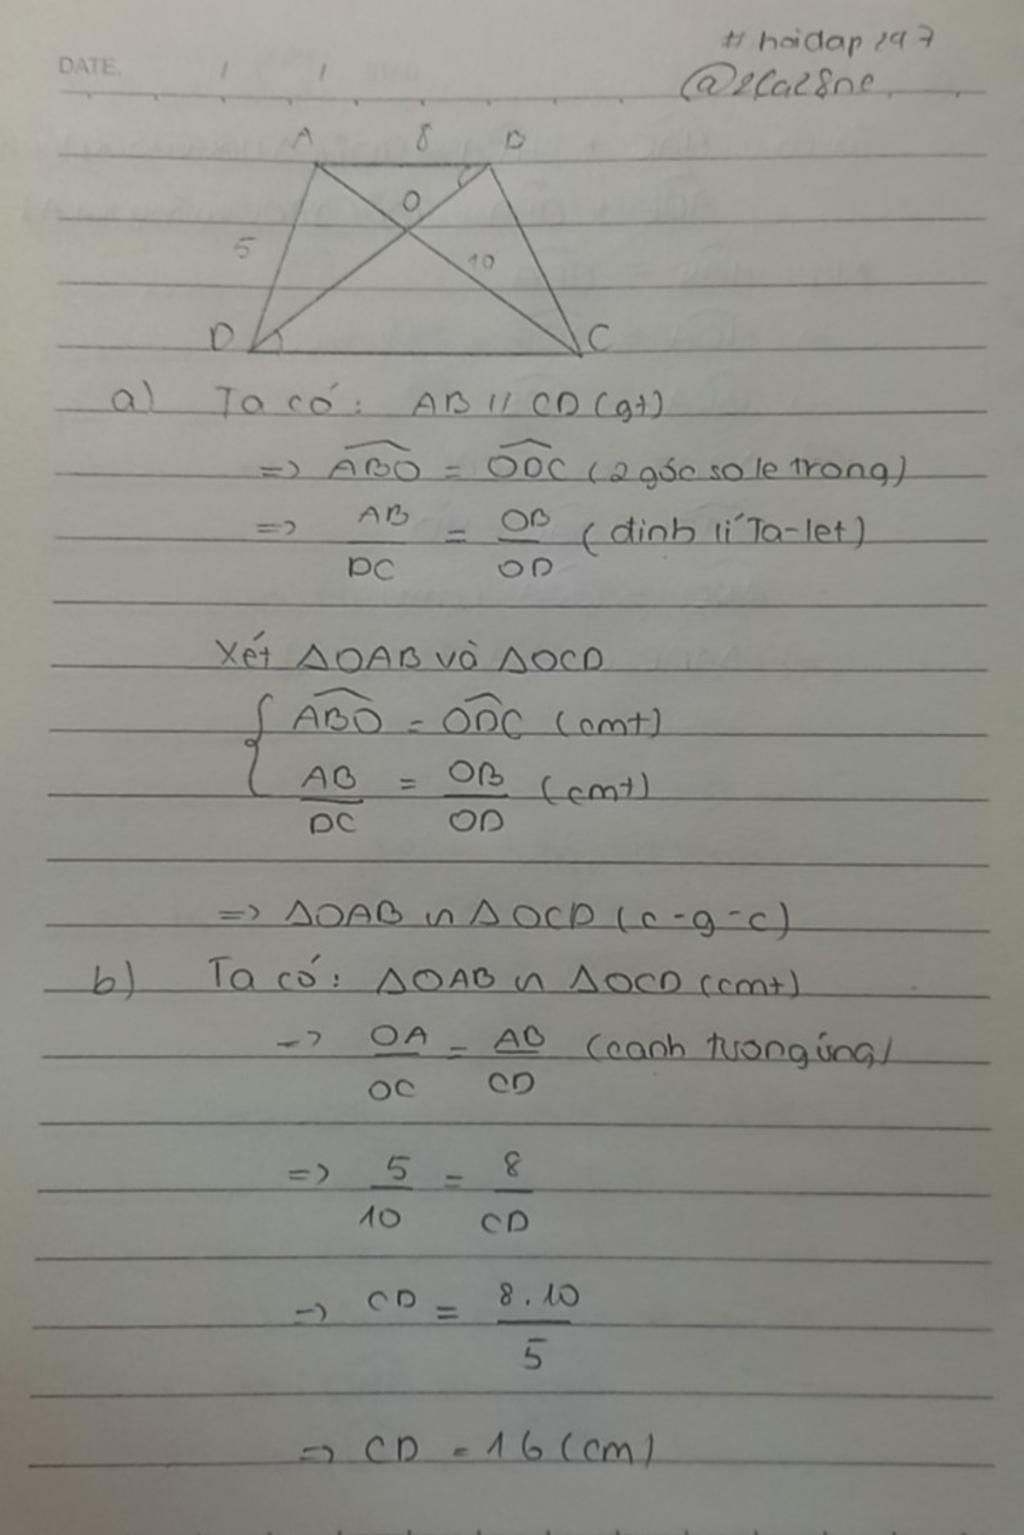 # hoidap247
DATE. / /
A 8 B
O
5
10
D C
a) Ta có: AB // CD (gt)
=> ABO = ODC (2 góc so le trong)
=> AB/DC = OB/OD (định lí Ta-let)
Xét ΔOAB và ΔOCD
{ ABO = ODC (cmt)
AB/DC = OB/OD (cmt)
=> ΔOAB ∽ ΔOCD (c-g-c)
b) Ta có: ΔOAB ∽ ΔOCD (cmt)
=> OA/OC = AB/CD (cạnh tương ứng)
=> 5/10 = 8/CD
=> CD = 8.10/5
=> CD = 16 (cm)